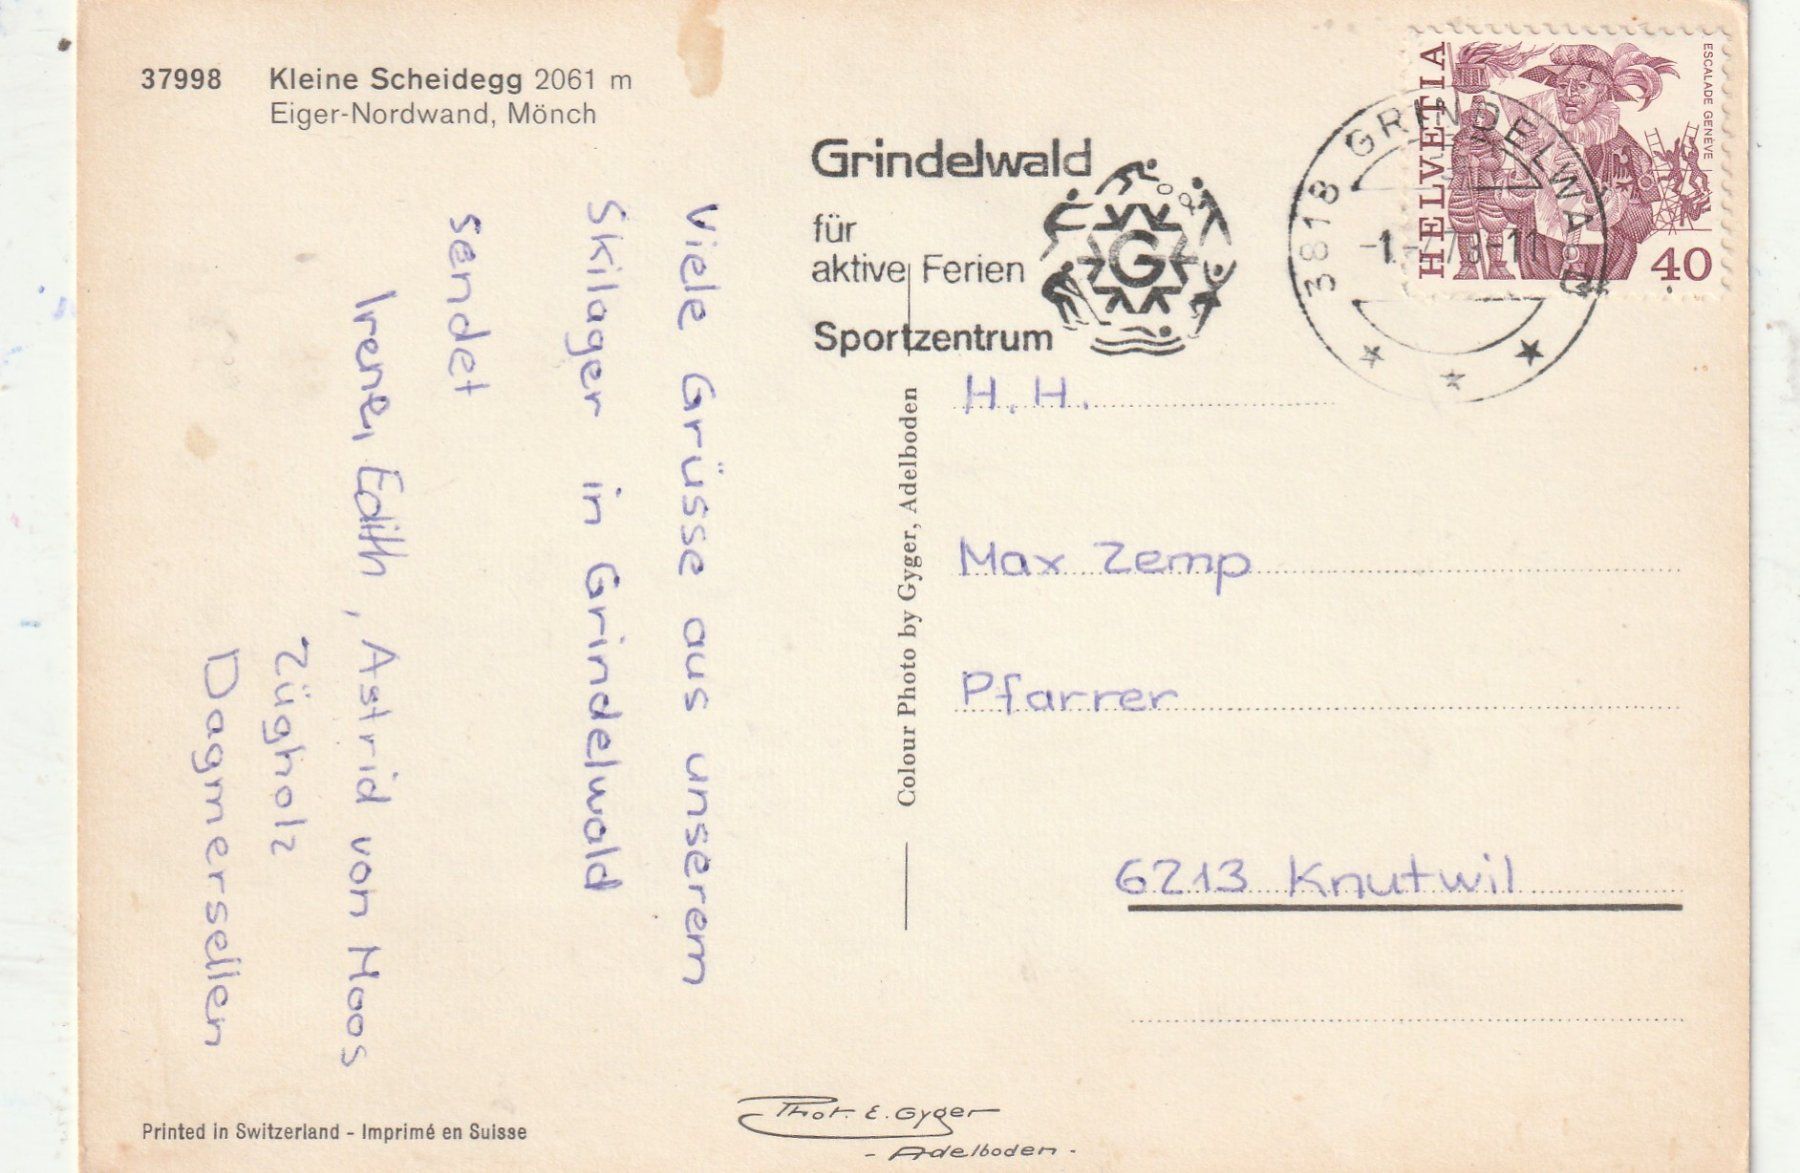 37998 Kleine Scheidegg 2061 m
Eiger-Nordwand, Mönch
Grindelwald
für
aktive Ferien
Sportzentrum
G
3818 GRINDELWALD
-1. 78-11
HELVETIA
ESCALADE GENÈVE
40
Viele Grüsse aus unserem
Skilager in Grindelwald
sendet
Irene, Edith, Astrid von Moos
Zügholz
Dagmersellen
Colour Photo by Gyger, Adelboden
H. H.
Max Zemp
Pfarrer
6213 Knutwil
Printed in Switzerland - Imprimé en Suisse
Phot. E. Gyger
- Adelboden -